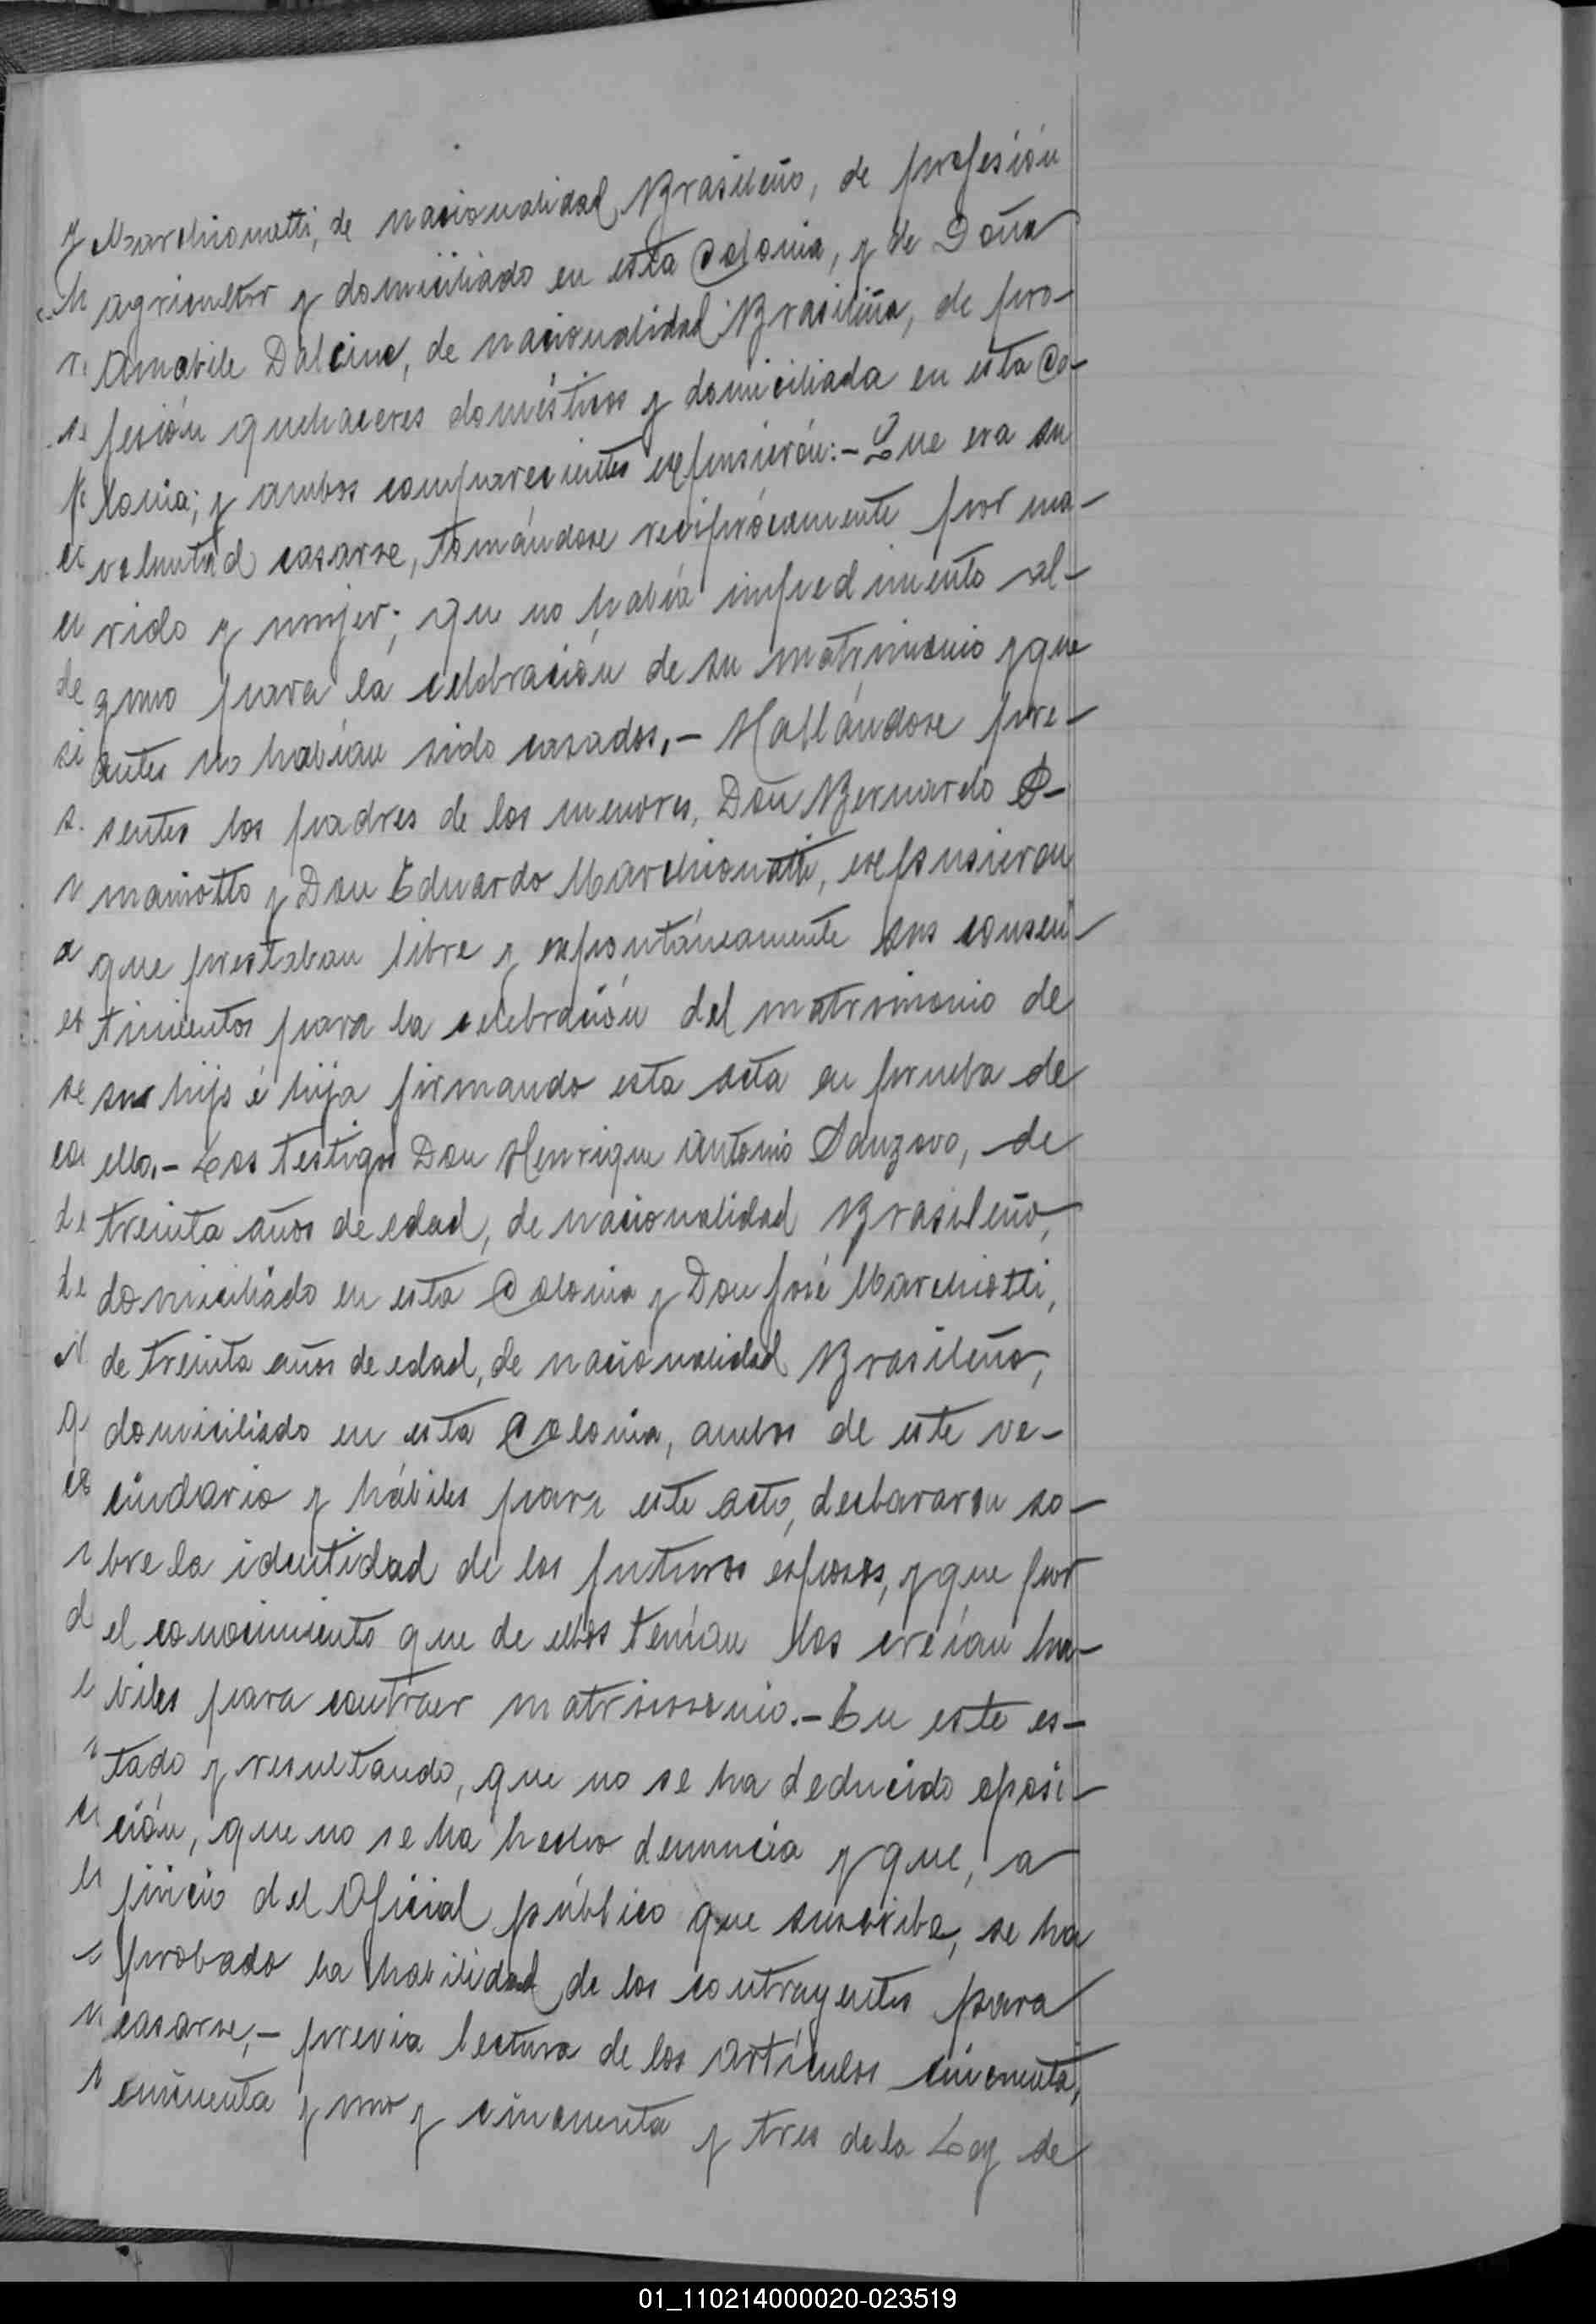 Marchionatti, de nacionalidad Brasileño, de profesión
agricultor y domiciliado en esta Colonia, y de Doña
Amabile Dalcine, de nacionalidad Brasileña, de pro-
fesión quehaceres domésticos y domiciliada en esta Co-
lonia; y ambos comparecientes expusierón:- Que era su
voluntad casarse, tomándose recíprócamente por ma-
rido y mujer; que no había impedimento al-
guno para la celebración de su matrimonio y que
antes no habían sido casados.- Hallándose pre-
sentes los padres de los menores, Don Bernardo
maniotto y Don Eduardo Marchionatti, expusieron
que prestaban libre y expontáneamente sus consen-
timientos para la celebración del matrimonio de
sus hijo é hija firmando esta acta en prueba de
ello.- Los testigos Don Henrique Antonio Sanzovo, de
treinta años de edad, de nacionalidad Brasileño,
domiciliado en esta Colonia y Don José Marchiotti,
de treinta años de edad, de nacionalidad Brasileño,
domiciliado en esta Colonia, ambos de este ve-
cindario y hábiles para este acto, declararon so-
bre la identidad de los futuros esposos, y que por
el conocimiento que de ellos tenían los creían há-
biles para contraer matrimonio.- En este es-
tado y resultando, que no se ha deducido oposi-
ción, que no se ha hecho denuncia y que, a
juicio del Oficial público que suscribe, se ha
probado la habilidad de los contrayentes para
casarse,- previa lectura de los artículos cincuenta,
cincuenta y uno y cincuenta y tres de la Ley de
01_110214000020-023519